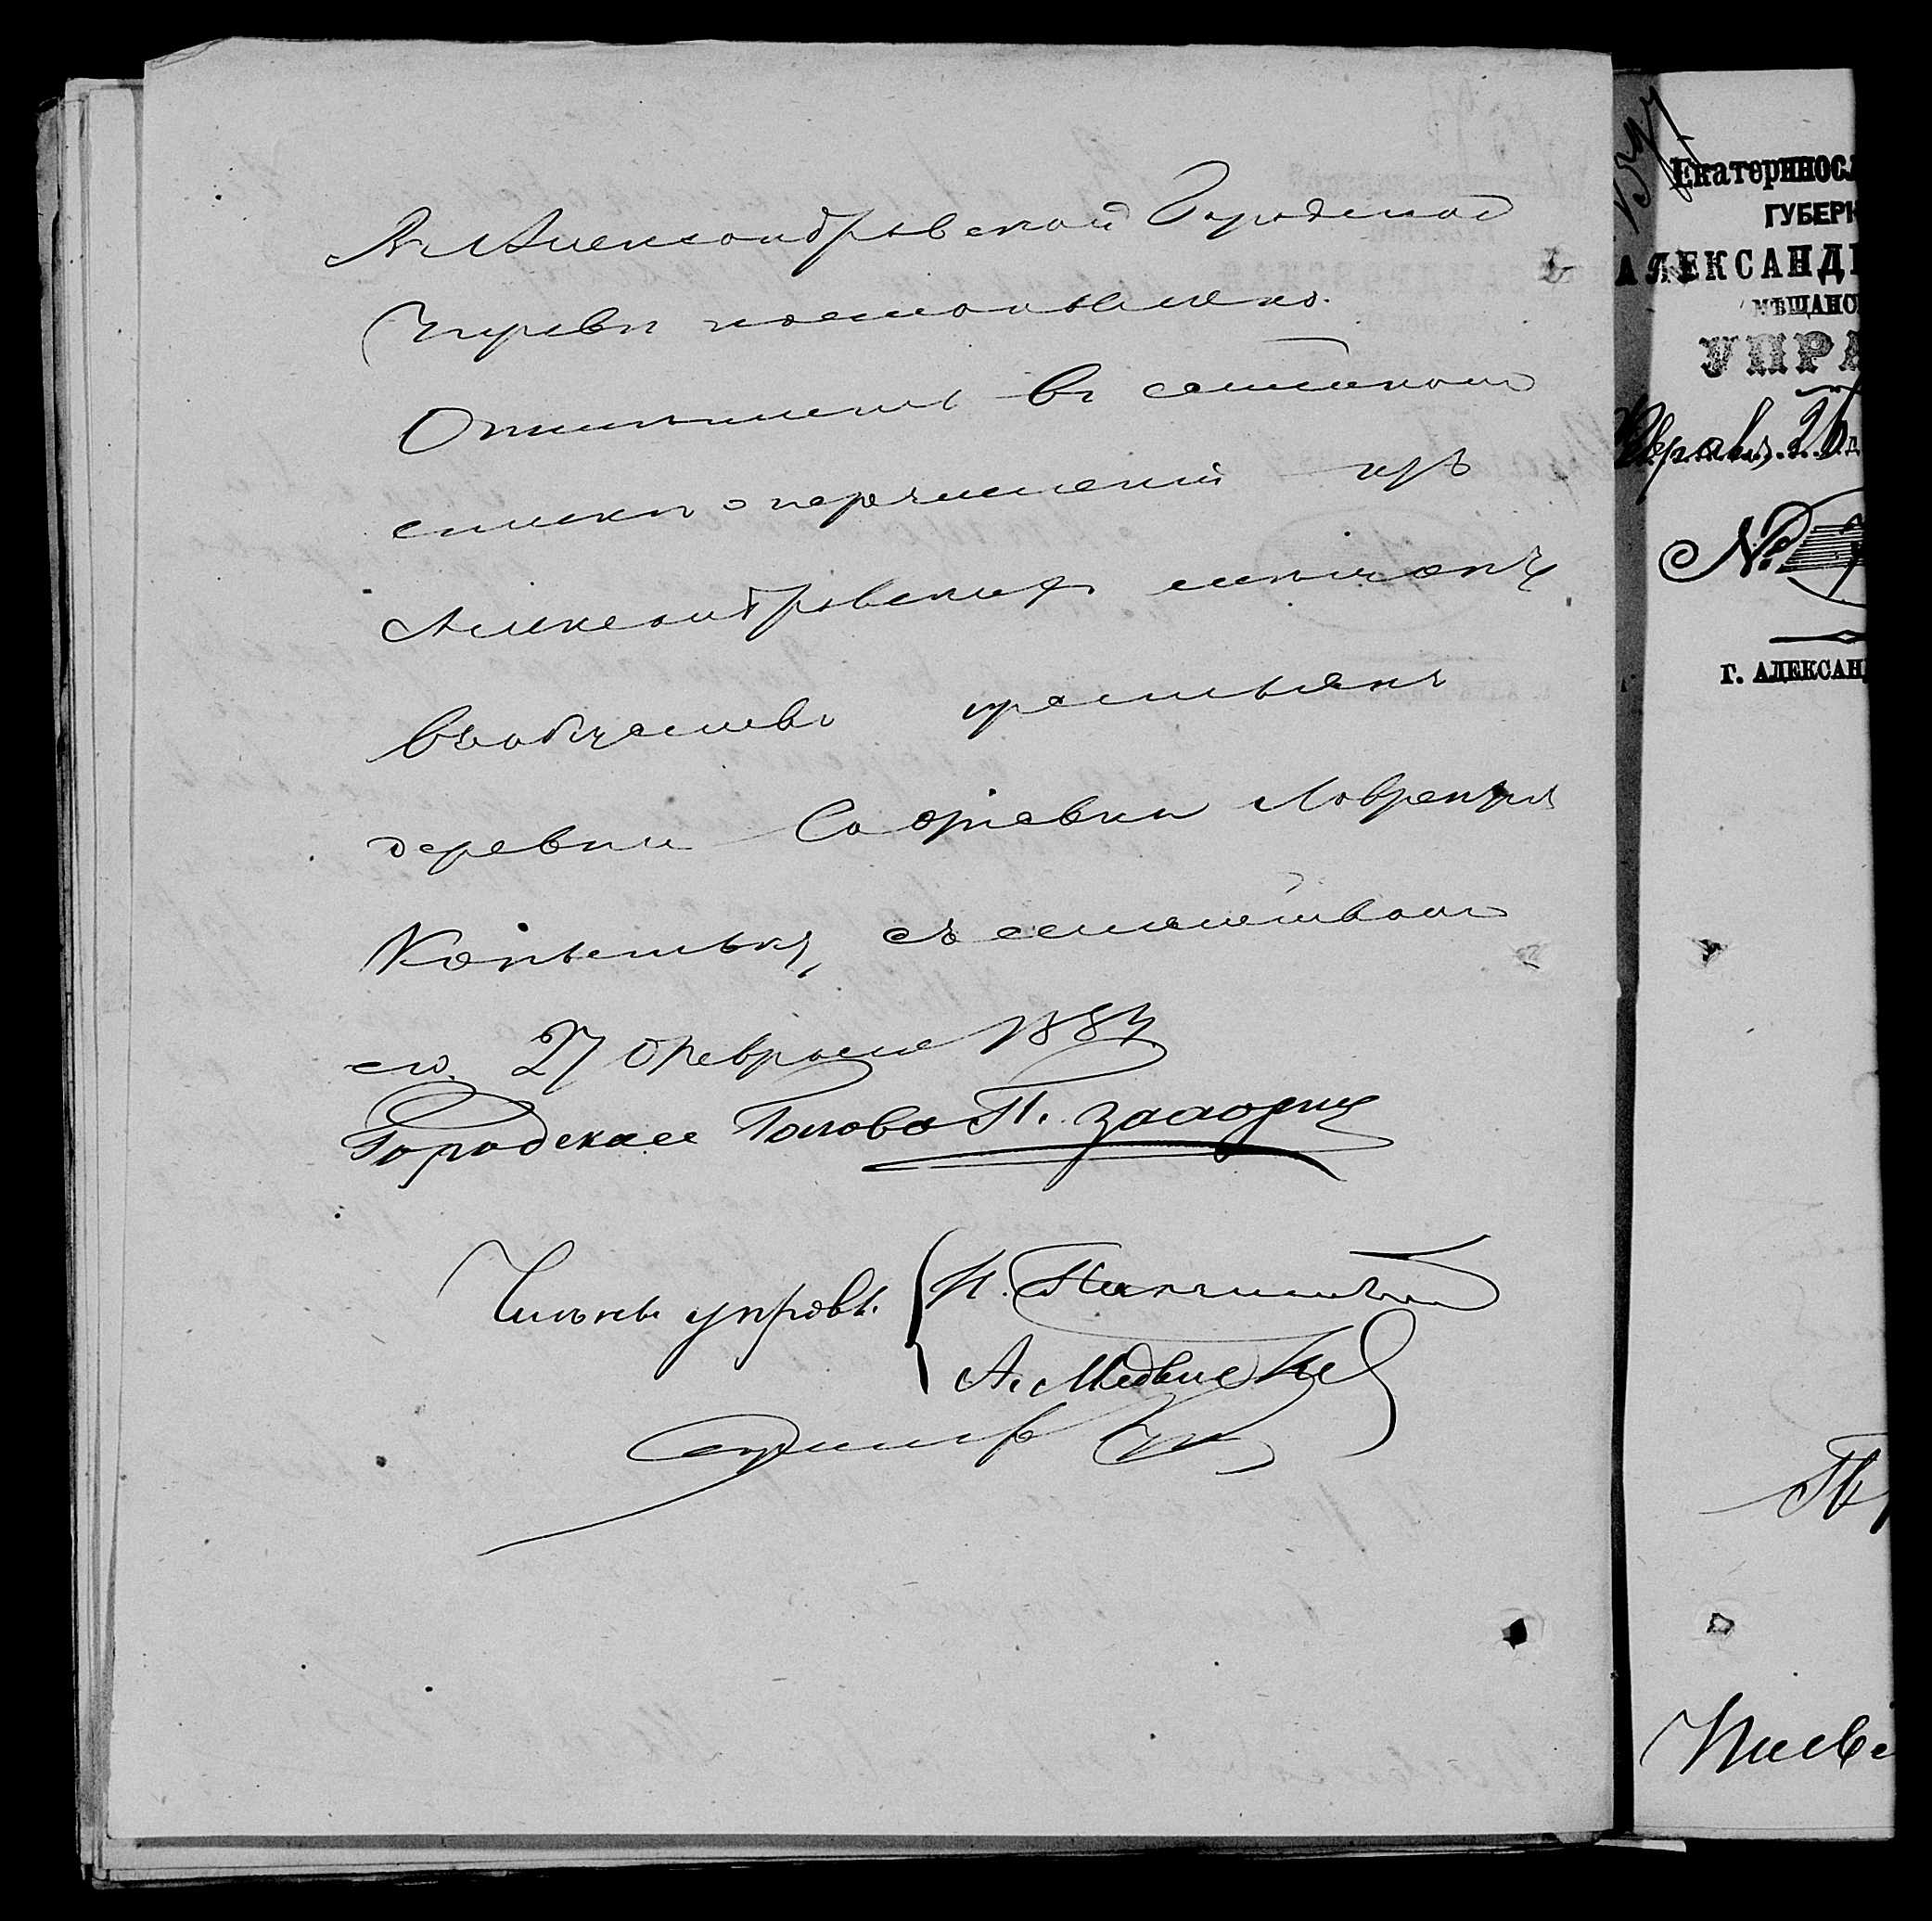 Въ Александровской Городской
Управѣ постановлено.
Отмѣтить въ семейномъ
спискѣ о перечисленіи изъ
Александровскихъ мѣщанъ
въ общество крестьянъ
деревни Софіевки Лаврентія
съ семействомъ
27 Февраля 1884
Городской Голова П. Захарин
Члены управы.
А. Медведев
Секретарь
Екатериносл
ГУБЕРН
АЛЕКСАНДР
МѢЩАНС
УПРА
Феврал. 26 д
№
Г. АЛЕКСАНД